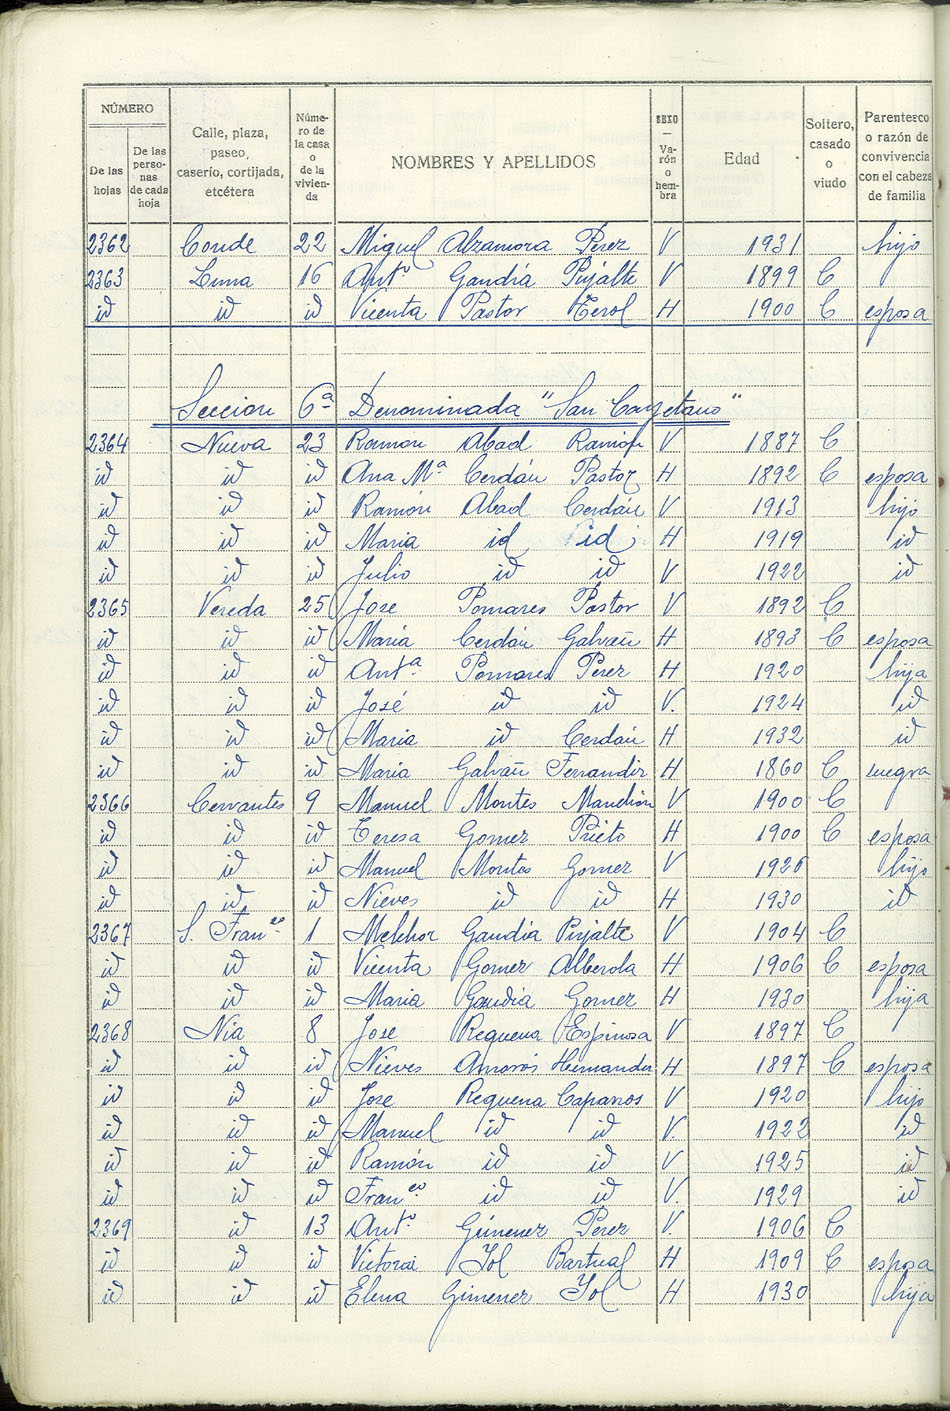 NÚMERO
De las hojas
De las personas de cada hoja
Calle, plaza, paseo, caserío, cortijada, etcétera
Número de la casa o de la vivienda
NOMBRES Y APELLIDOS
SEXO — Varón o hembra
Edad
Soltero, casado o viudo
Parentesco o razón de convivencia con el cabeza de familia
2362 Conde 22 Miguel Alzamora Perez V 1931 hijo
2363 Luna 16 Antº Gandía Pujalte V 1899 C
id id id Vicenta Pastor Terol H 1900 C esposa
Seccion 6ª Denominada "San Cayetano"
2364 Nueva 23 Ramón Abad V 1887 C
id id id Ana Mª Cerdán Pastor H 1892 C esposa
id id id Ramón Abad Cerdán V 1913 hijo
id id id Maria id id H 1919 id
id id id Julio id id V 1922 id
2365 Vereda 25 Jose Pomares Pastor V 1892 C
id id id Maria Cerdán Galvañ H 1893 C esposa
id id id Antª Pomares Perez H 1920 hija
id id id José id id V. 1924 id
id id id Maria id Cerdán H 1932 id
id id id Maria Galvañ Ferrandiz H 1860 C suegra
2366 Cervantes 9 Manuel Montes V 1900 C
id id id Teresa Gomez Prieto H 1900 C esposa
id id id Manuel Montes Gomez V 1926 hijo
id id id Nieves id id H 1930 id
2367 S. Franco 1 Melchor Gandia Pujalte V 1904 C
id id id Vicenta Gomez Alberola H 1906 C esposa
id id id Maria Gandia Gomez H 1930 hija
2368 Nia 8 Jose Requena Espinosa V 1897 C
id id id Nieves Amorós Hernandez H 1897 C esposa
id id id Jose Requena Caparros V 1920 hijo
id id id Manuel id id V. 1922 id
id id id Ramón id id V 1925 id
id id id Franco id id V. 1929 id
2369 id 13 Antº Gimenez Perez V. 1906 C
id id id Victoria Sol Bartual H 1909 C esposa
id id id Elena Gimenez Sol H 1930 hija